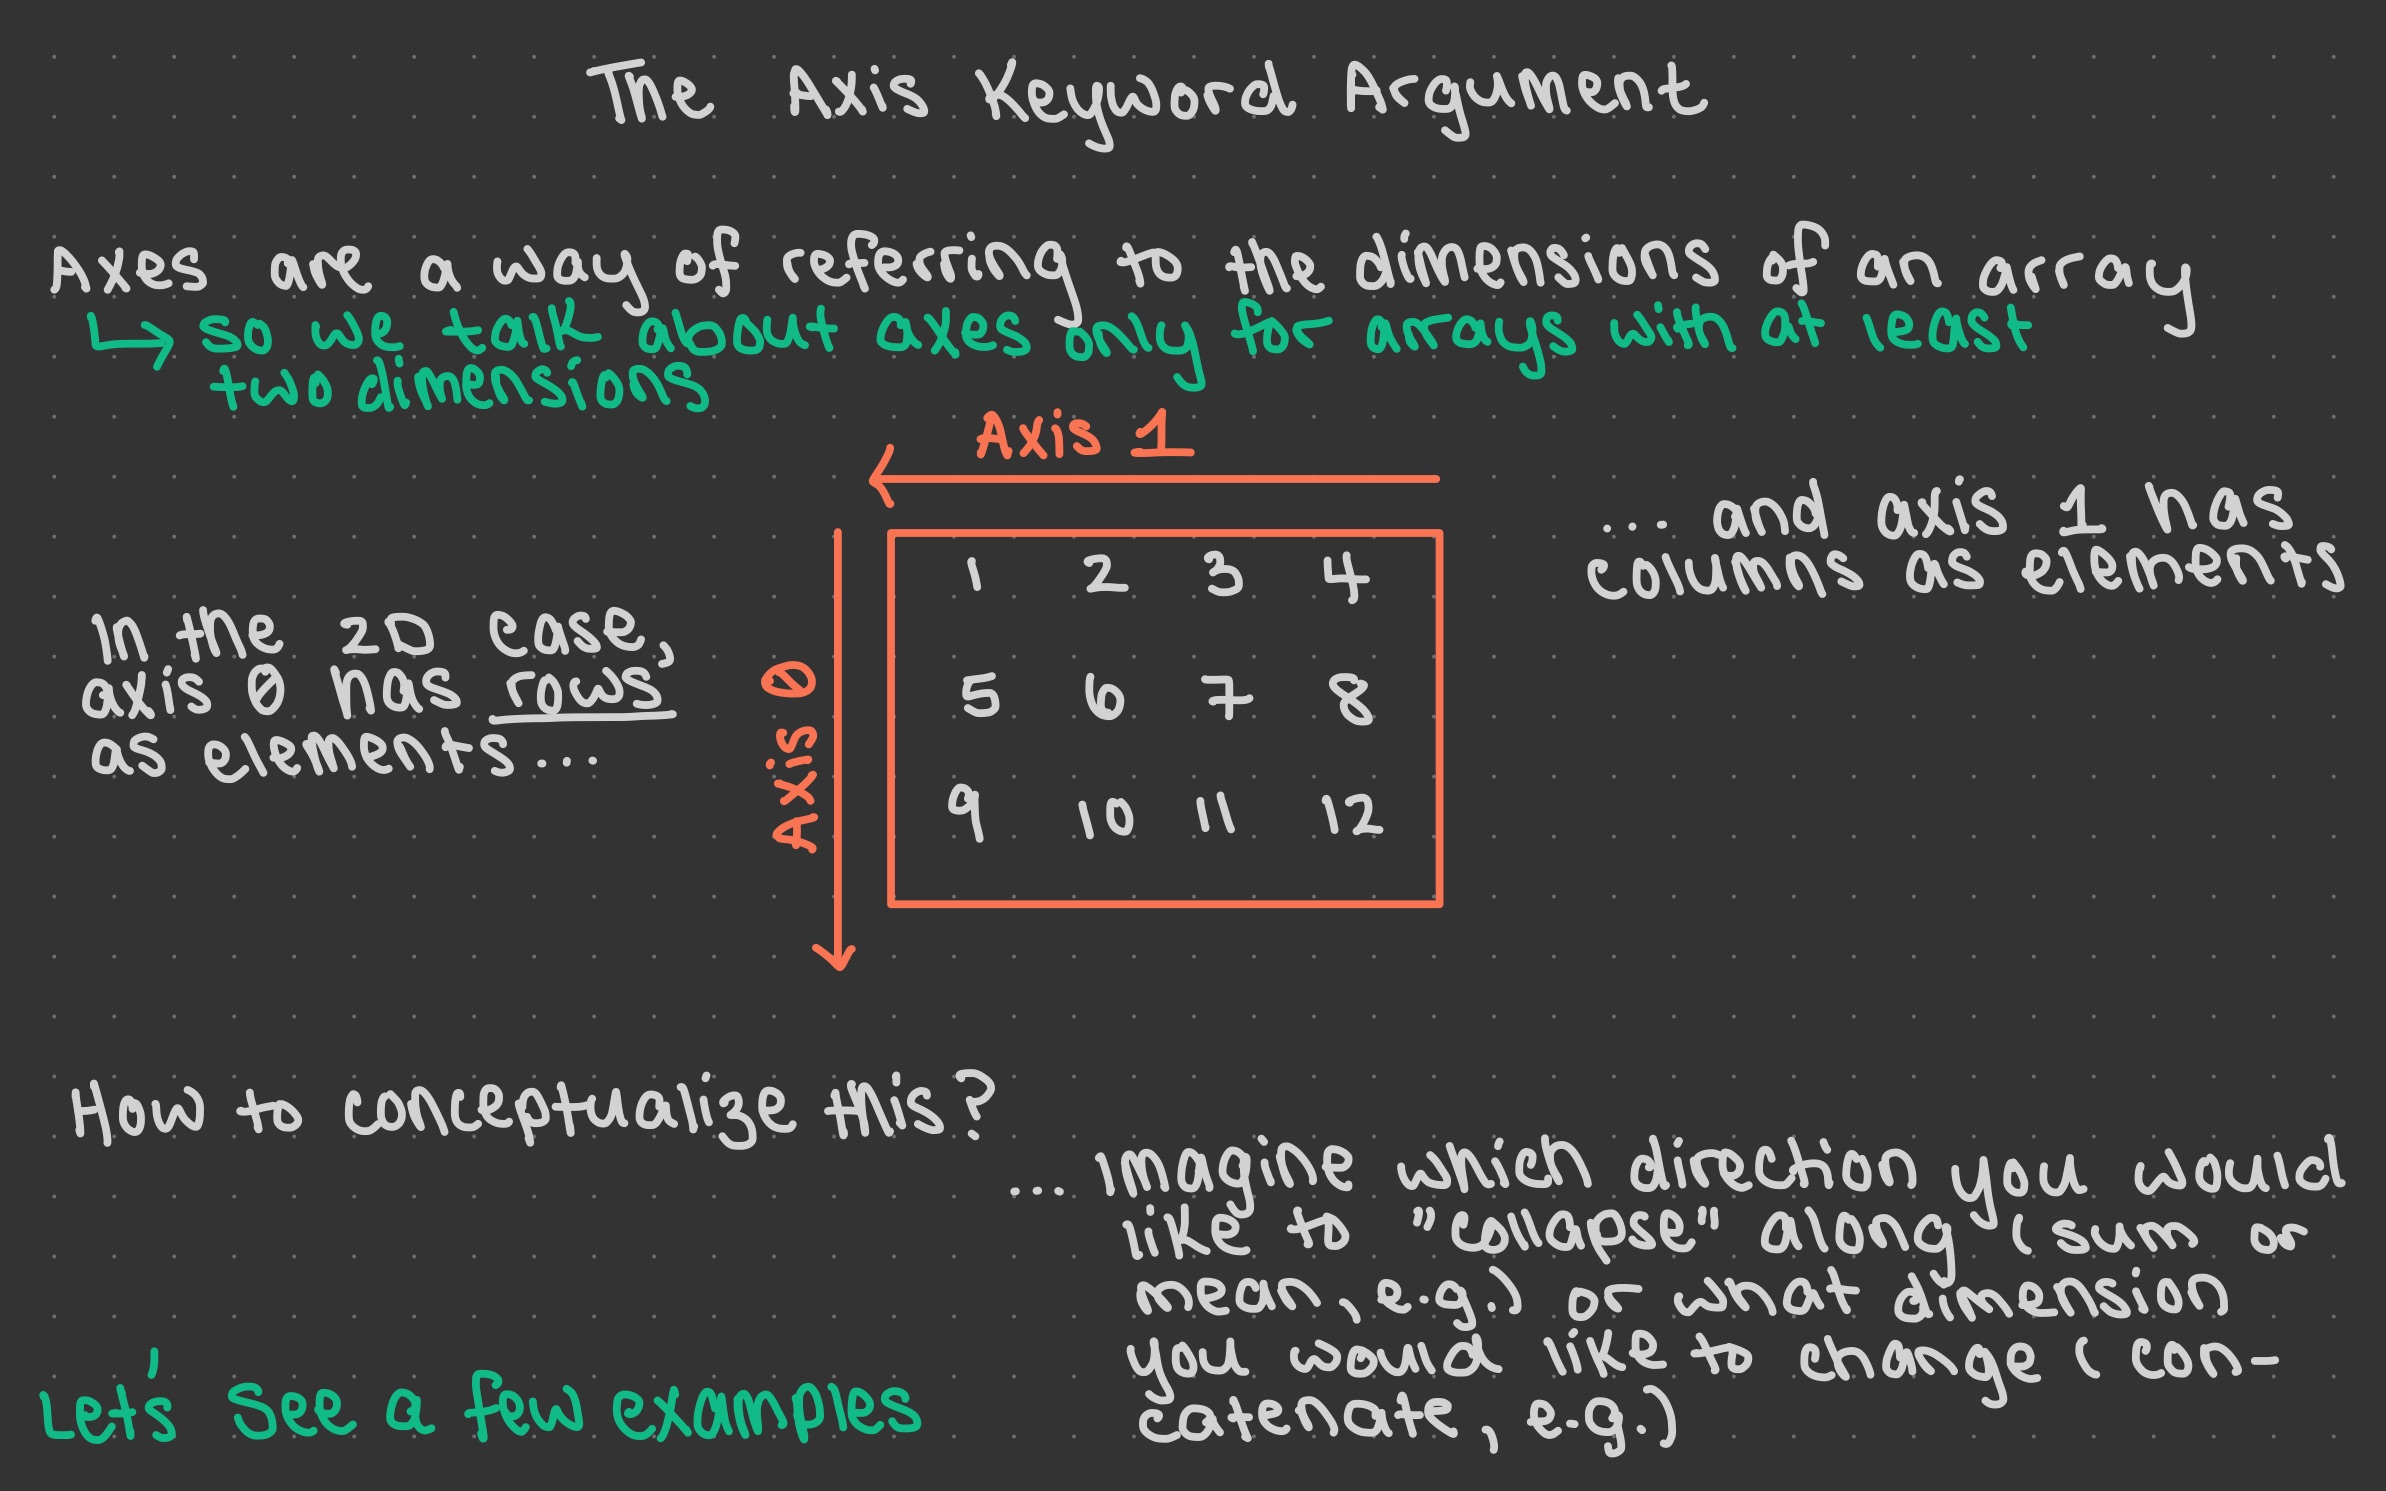 The Axis Keyword Argument
Axes are a way of referring to the dimensions of an array
↳ so we talk about axes only for arrays with at least
two dimensions
Axis 1
... and axis 1 has
columns as elements
In the 2D case,
axis 0 has rows
as elements...
Axis 0
1 2 3 4
5 6 7 8
9 10 11 12
How to conceptualize this?
... imagine which direction you would
like to "collapse" along (sum or
mean, e.g.) or what dimension
you would like to change (con-
catenate, e.g.)
Let's see a few examples